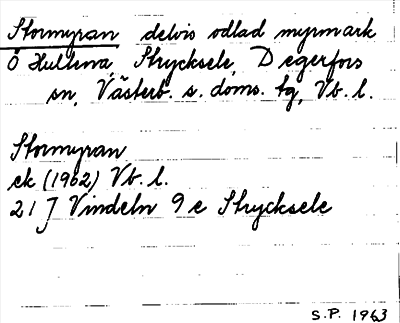 Stormyran delvis odlad myrmark
Ö Hultena, Strycksele, Degerfors
sn, Västerb. s. doms. tg, Vb. l.
Stormyran
ek (1962) Vb. l.
21 J Vindeln 9 e Strycksele
S.P. 1963